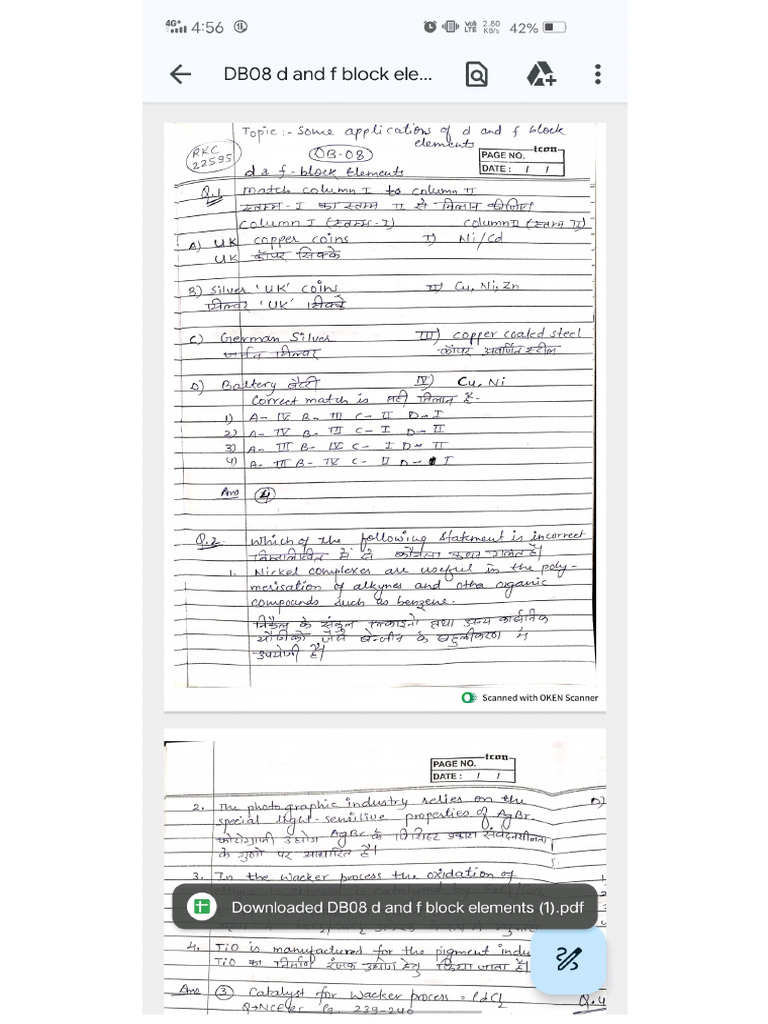 4G+ 4:56 Vo)) LTE 2.80 KB/s 42%
DB08 d and f block ele...
Topic :- Some applications of d and f block
elements
RKC
22595
DB-08
tcon
PAGE NO.
DATE : / /
d & f - block Elements
Q.1 Match column I to column II
स्तम्भ - I का स्तम्भ II से मिलान कीजिए
Column I (स्तम्भ - I) Column II (स्तम्भ II)
A) UK copper coins I) Ni/Cd
UK कॉपर सिक्के
B) Silver 'UK' coins II) Cu, Ni, Zn
सिल्वर 'UK' सिक्के
C) German Silver III) copper coated steel
जर्मन सिल्वर कॉपर स्टील
D) Battery बैटरी IV) Cu, Ni
Correct match is सही मिलान है -
1) A - IV B - III C - II D - I
2) A - IV B - III C - I D - II
3) A - III B - IV C - I D - II
4) A - III B - IV C - II D - I
Ans 4
Q.2 Which of the following statement is incorrect
निम्नलिखित में से कौनसा कथन गलत है।
1. Nickel complexes are useful in the poly -
merisation of alkynes and other organic
compounds such as benzene.
निकैल के संकुल एल्काइनो तथा अन्य कार्बनिक
यौगिको जैसे बेन्जीन के बहुलीकरण में
उपयोगी हैं।
Scanned with OKEN Scanner
tcon
PAGE NO.
DATE : / /
2. The photographic industry relies on the
special light-sensitive properties of AgBr.
फोटोग्राफी उद्योग AgBr के विशिष्ट प्रकाश संवेदनशीलता
के गुणो पर आधारित है।
3. In the Wacker process the oxidation of
Downloaded DB08 d and f block elements (1).pdf
4. TiO is manufactured for the pigment indu
TiO का निर्माण रंजक उद्योग हेतु किया जाता है।
Ans 3 Catalyst for Wacker process = PdCl2
NCERT Pg. 239-240 Q.4